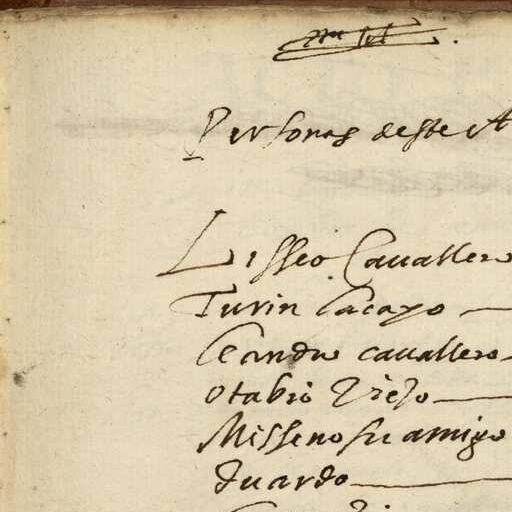 Personas deste A
Lisseo Cauallero
Turin lacayo
leandro cauallero
otabio Viejo
Misseno su amigo
duardo